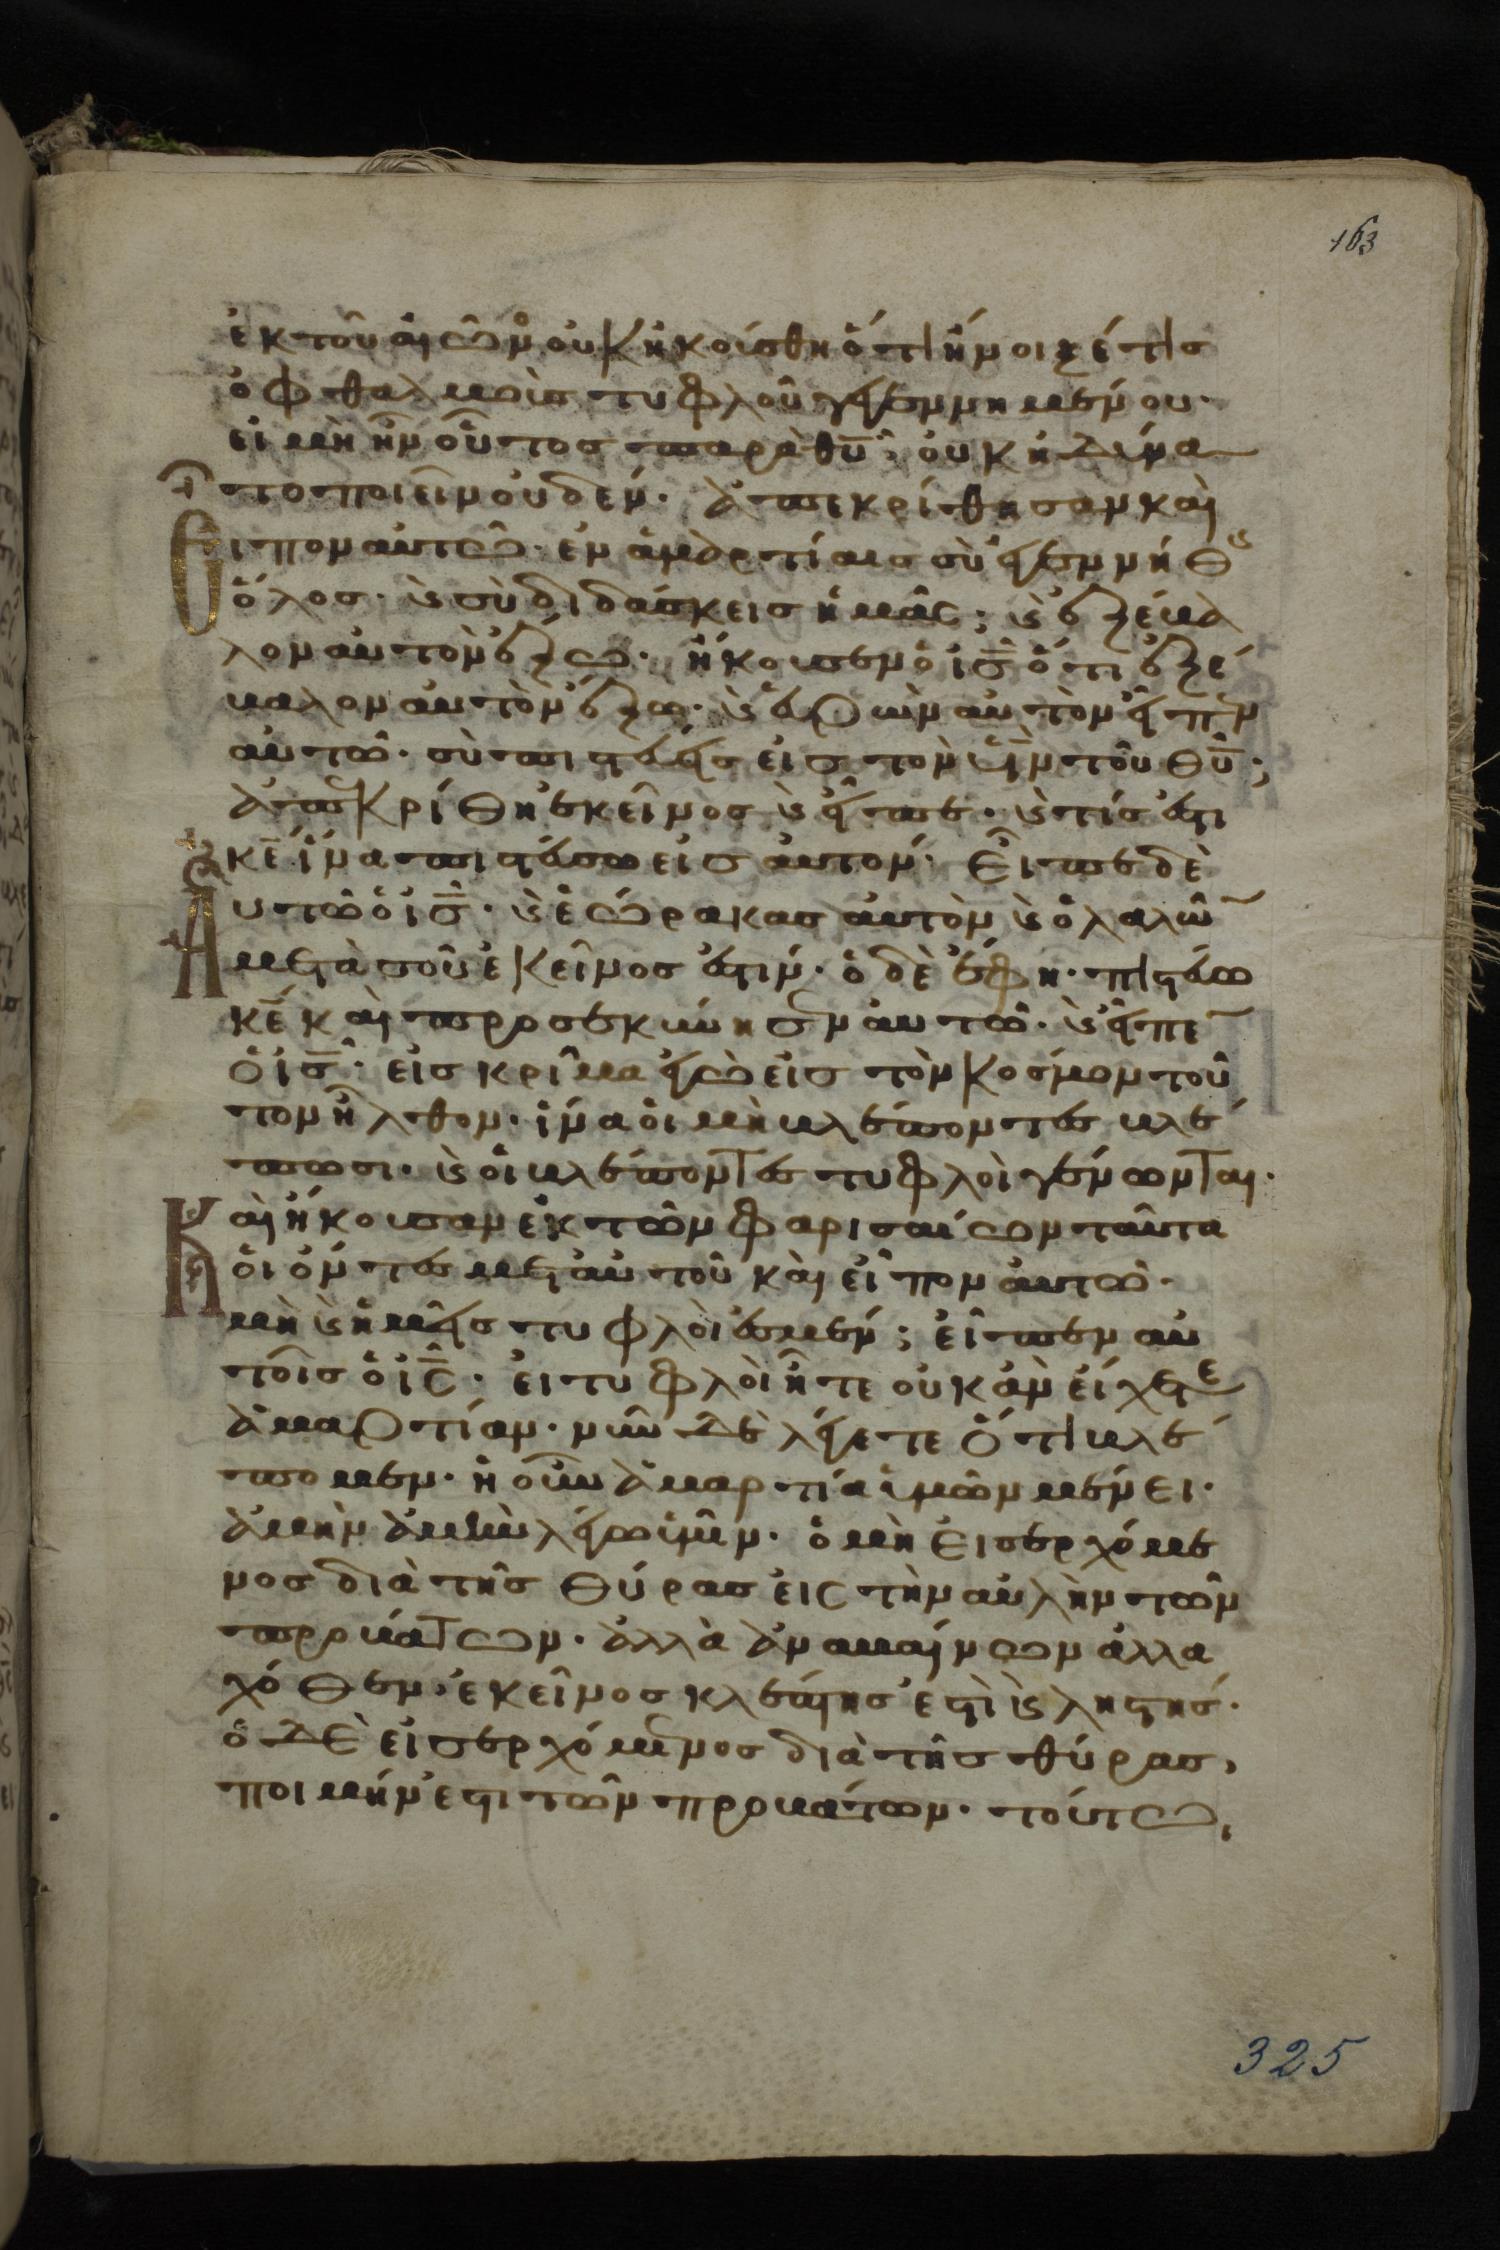 163
ἐκ τοῦ αἰῶνο οὐκ ἠκούσθη ὅτι ἤνοιξέ τις
ὀφθαλμοὺς τυφλοῦ γεγεννημένου·
εἰ μὴ ἦν οὗτος παρὰ θυ̅; οὐκ ἠδύνα
το ποιεῖν οὐδέν· ἀπεκρίθησαν καὶ
εἶπον αὐτῶ· ἐν ἁμαρτίαις σὺ ἐγεννήθης
ὅλος· καὶ σὺ διδάσκεις ἡμᾶς; καὶ ἐξέβα
λον αὐτὸν ἔξω· ἤκουσεν ὁ ις̅ ὅτι ἐξέ
βαλον αὐτὸν ἔξω· καὶ εὑρὼν αὐτὸν εἶπεν
αὐτῶ· σὺ πιστεύεις εἰς τὸν υν̅ τοῦ θυ̅;
ἀπεκρίθη ἐκεῖνος καὶ εἶπε· καὶ τίς ἐστι
κε̅ ἵνα πιστεύσω εἰς αὐτόν· Εἶπε δὲ
Αυτῶ ὁ ις̅· καὶ ἑώρακας αὐτὸν καὶ ὁ λαλῶν
μετὰ σοῦ ἐκεῖνος ἐστιν· ὁ δὲ ἔφη· πιστεύω
κε̅ καὶ προσεκύνησεν αὐτῶ· καὶ εἶπεν
ὁ ις̅· εἰς κρῖμα ἐγὼ εἰς τὸν κόσμον τοῦ
τον ἦλθον· ἵνα οἱ μὴ βλέποντες βλέ
πωσι· καὶ οἱ βλέποντες τυφλοὶ γένωνται·
Καὶ ἤκουσαν ἐκ τῶν φαρισαίων ταῦτα
οἱ ὄντες μετ' αὐτοῦ καὶ εἶπον αὐτῶ·
μὴ καὶ ἡμεῖς τυφλοὶ ἐσμέν; εἶπεν αὐ
τοῖς ὁ ις̅· εἰ τυφλοὶ ἦτε οὐκ ἀν εἴχετε
ἁμαρτίαν· νῦν δὲ λέγετε ὅτι βλέ
πομεν· ἡ οὖν ἁμαρτία ὑμῶν μένει·
ἀμὴν ἀμὴν λέγω ὑμῖν· ὁ μὴ εἰσερχόμε
νος διὰ τῆς θύρας εἰς τὴν αὐλὴν τῶν
προβάτων· ἀλλὰ ἀναβαίνων ἀλλα
χόθεν· ἐκεῖνος κλέπτης ἐστὶ καὶ ληστής·
ὁ δὲ εἰσερχόμενος διὰ τῆς θύρας,
ποιμήν ἐστι τῶν προβάτων· τούτω,
325